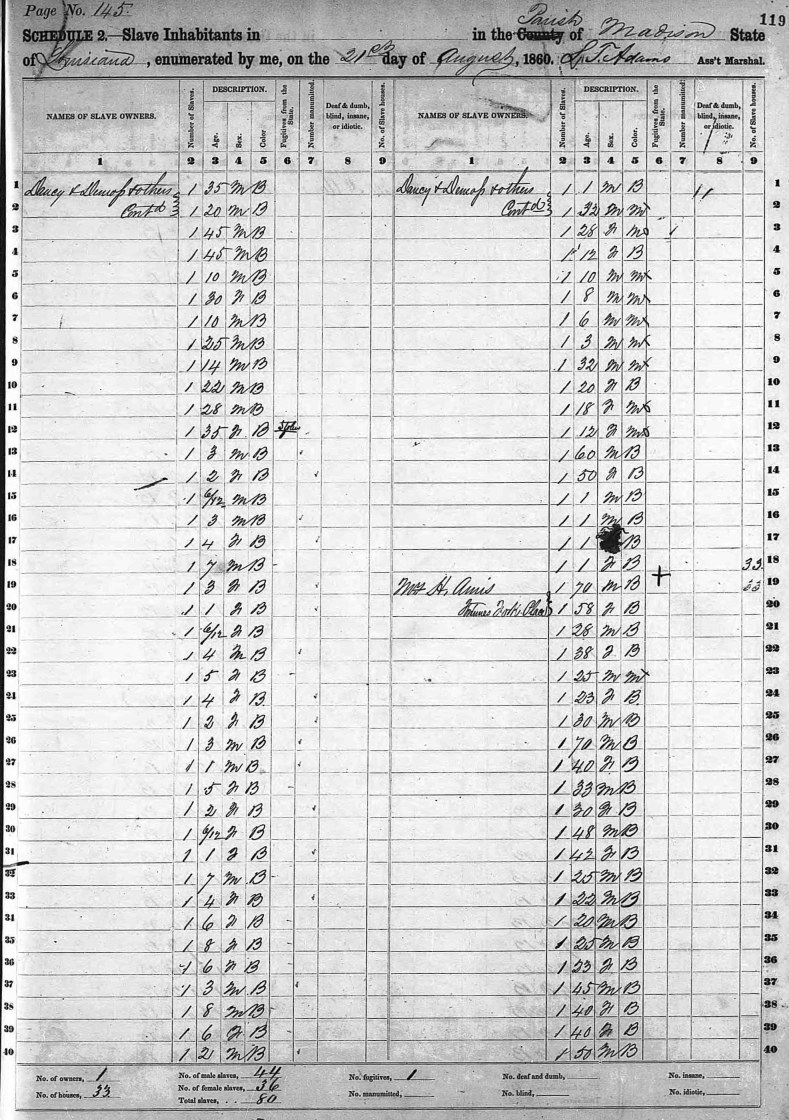 Page No. 145.
119
SCHEDULE 2.—Slave Inhabitants in in the County Parish of Madison State
of Louisiana, enumerated by me, on the 21st day of August, 1860. Adams Ass't Marshal.
NAMES OF SLAVE OWNERS. Number of Slaves. DESCRIPTION. Age. Sex. Color. Fugitives from the State. Number manumitted. Deaf & dumb, blind, insane, or idiotic. No. of Slave houses. NAMES OF SLAVE OWNERS. Number of Slaves. DESCRIPTION. Age. Sex. Color. Fugitives from the State. Number manumitted. Deaf & dumb, blind, insane, or idiotic. No. of Slave houses.
1 2 3 4 5 6 7 8 9 1 2 3 4 5 6 7 8 9
1 Dancy & Demoss & others 1 35 M B Dancy & Demoss & others 1 1 M B 1
2 Contd 1 20 M B Contd 1 32 M M 2
3 1 45 M B 1 28 F M 3
4 1 45 M B 1 12 F B 4
5 1 10 M B 1 10 M M 5
6 1 30 F B 1 8 M M 6
7 1 10 M B 1 6 M M 7
8 1 25 M B 1 3 M M 8
9 1 14 M B 1 32 M M 9
10 1 22 M B 1 20 F B 10
11 1 28 M B 1 18 F M 11
12 1 35 F B 1 12 F M 12
13 1 3 M B 1 60 M B 13
14 1 2 F B 1 50 F B 14
15 1 6/12 M B 1 1 M B 15
16 1 3 M B 1 1 M B 16
17 1 4 F B 1 1 B 17
18 1 7 M B 1 1 F B 33 18
19 1 3 F B H. Amis 1 70 M B 33 19
20 1 1 F B 1 58 F B 20
21 1 6/12 F B 1 28 M B 21
22 1 4 M B 1 38 F B 22
23 1 5 F B 1 25 M M 23
24 1 4 F B 1 23 F B 24
25 1 2 F B 1 30 M B 25
26 1 3 M B 1 70 M B 26
27 1 1 M B 1 40 F B 27
28 1 5 F B 1 33 M B 28
29 1 2 F B 1 30 F B 29
30 1 6/12 F B 1 48 M B 30
31 1 1 F B 1 42 F B 31
32 1 7 M B 1 25 M B 32
33 1 4 F B 1 22 M B 33
34 1 6 F B 1 20 M B 34
35 1 8 F B 1 25 M B 35
36 1 6 F B 1 23 F B 36
37 1 3 M B 1 45 M B 37
38 1 8 M B 1 40 F B 38
39 1 6 F B 1 40 F B 39
40 1 2 M B 1 50 M B 40
No. of owners, 1 No. of male slaves, 44 No. fugitives, 1 No. deaf and dumb, No. insane,
No. of houses, 33 No. of female slaves, 36 No. manumitted, No. blind, No. idiotic,
Total slaves, 80